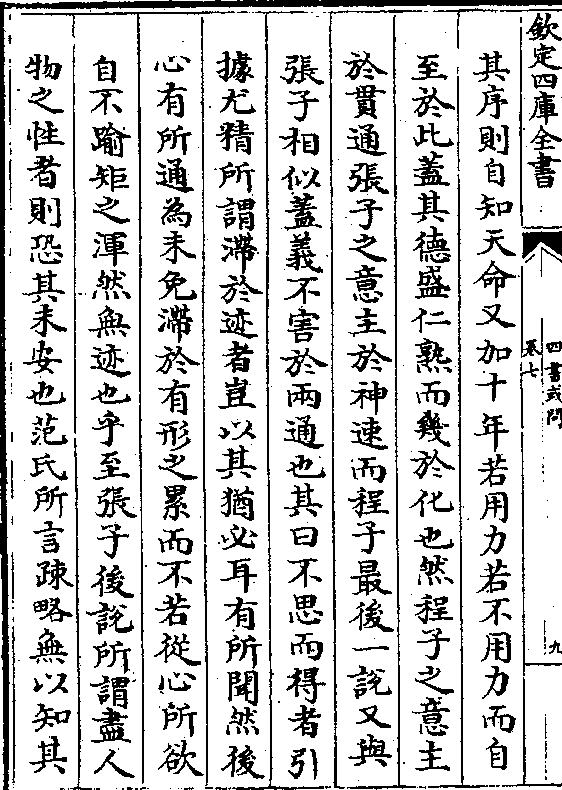 欽定四庫全書
四書或問
卷七
九
其序則自知天命又加十年若用力若不用力而自
至於此蓋其德盛仁熟而幾於化也然程子之意主
於貫通張子之意主於神速而程子最後一說又與
張子相似蓋義不害於兩通也其曰不思而得者引
據尤精所謂滯於迹者豈以其猶必耳有所聞然後
心有所通為未免滯於有形之累而不若從心所欲
自不踰矩之渾然無迹也乎至張子後說所謂盡人
物之性者則恐其未安也范氏所言疎略無以知其